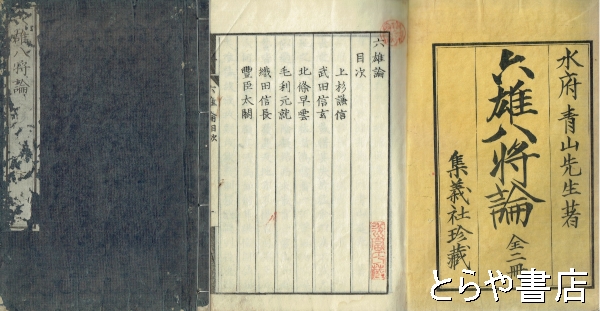 六雄八将論
六雄論
目次
上杉謙信
武田信玄
北條早雲
毛利元就
織田信長
豐臣太閤
六雄論目次
水府青山先生著
六雄八将論
全二冊
集義社珍藏
とらや書店